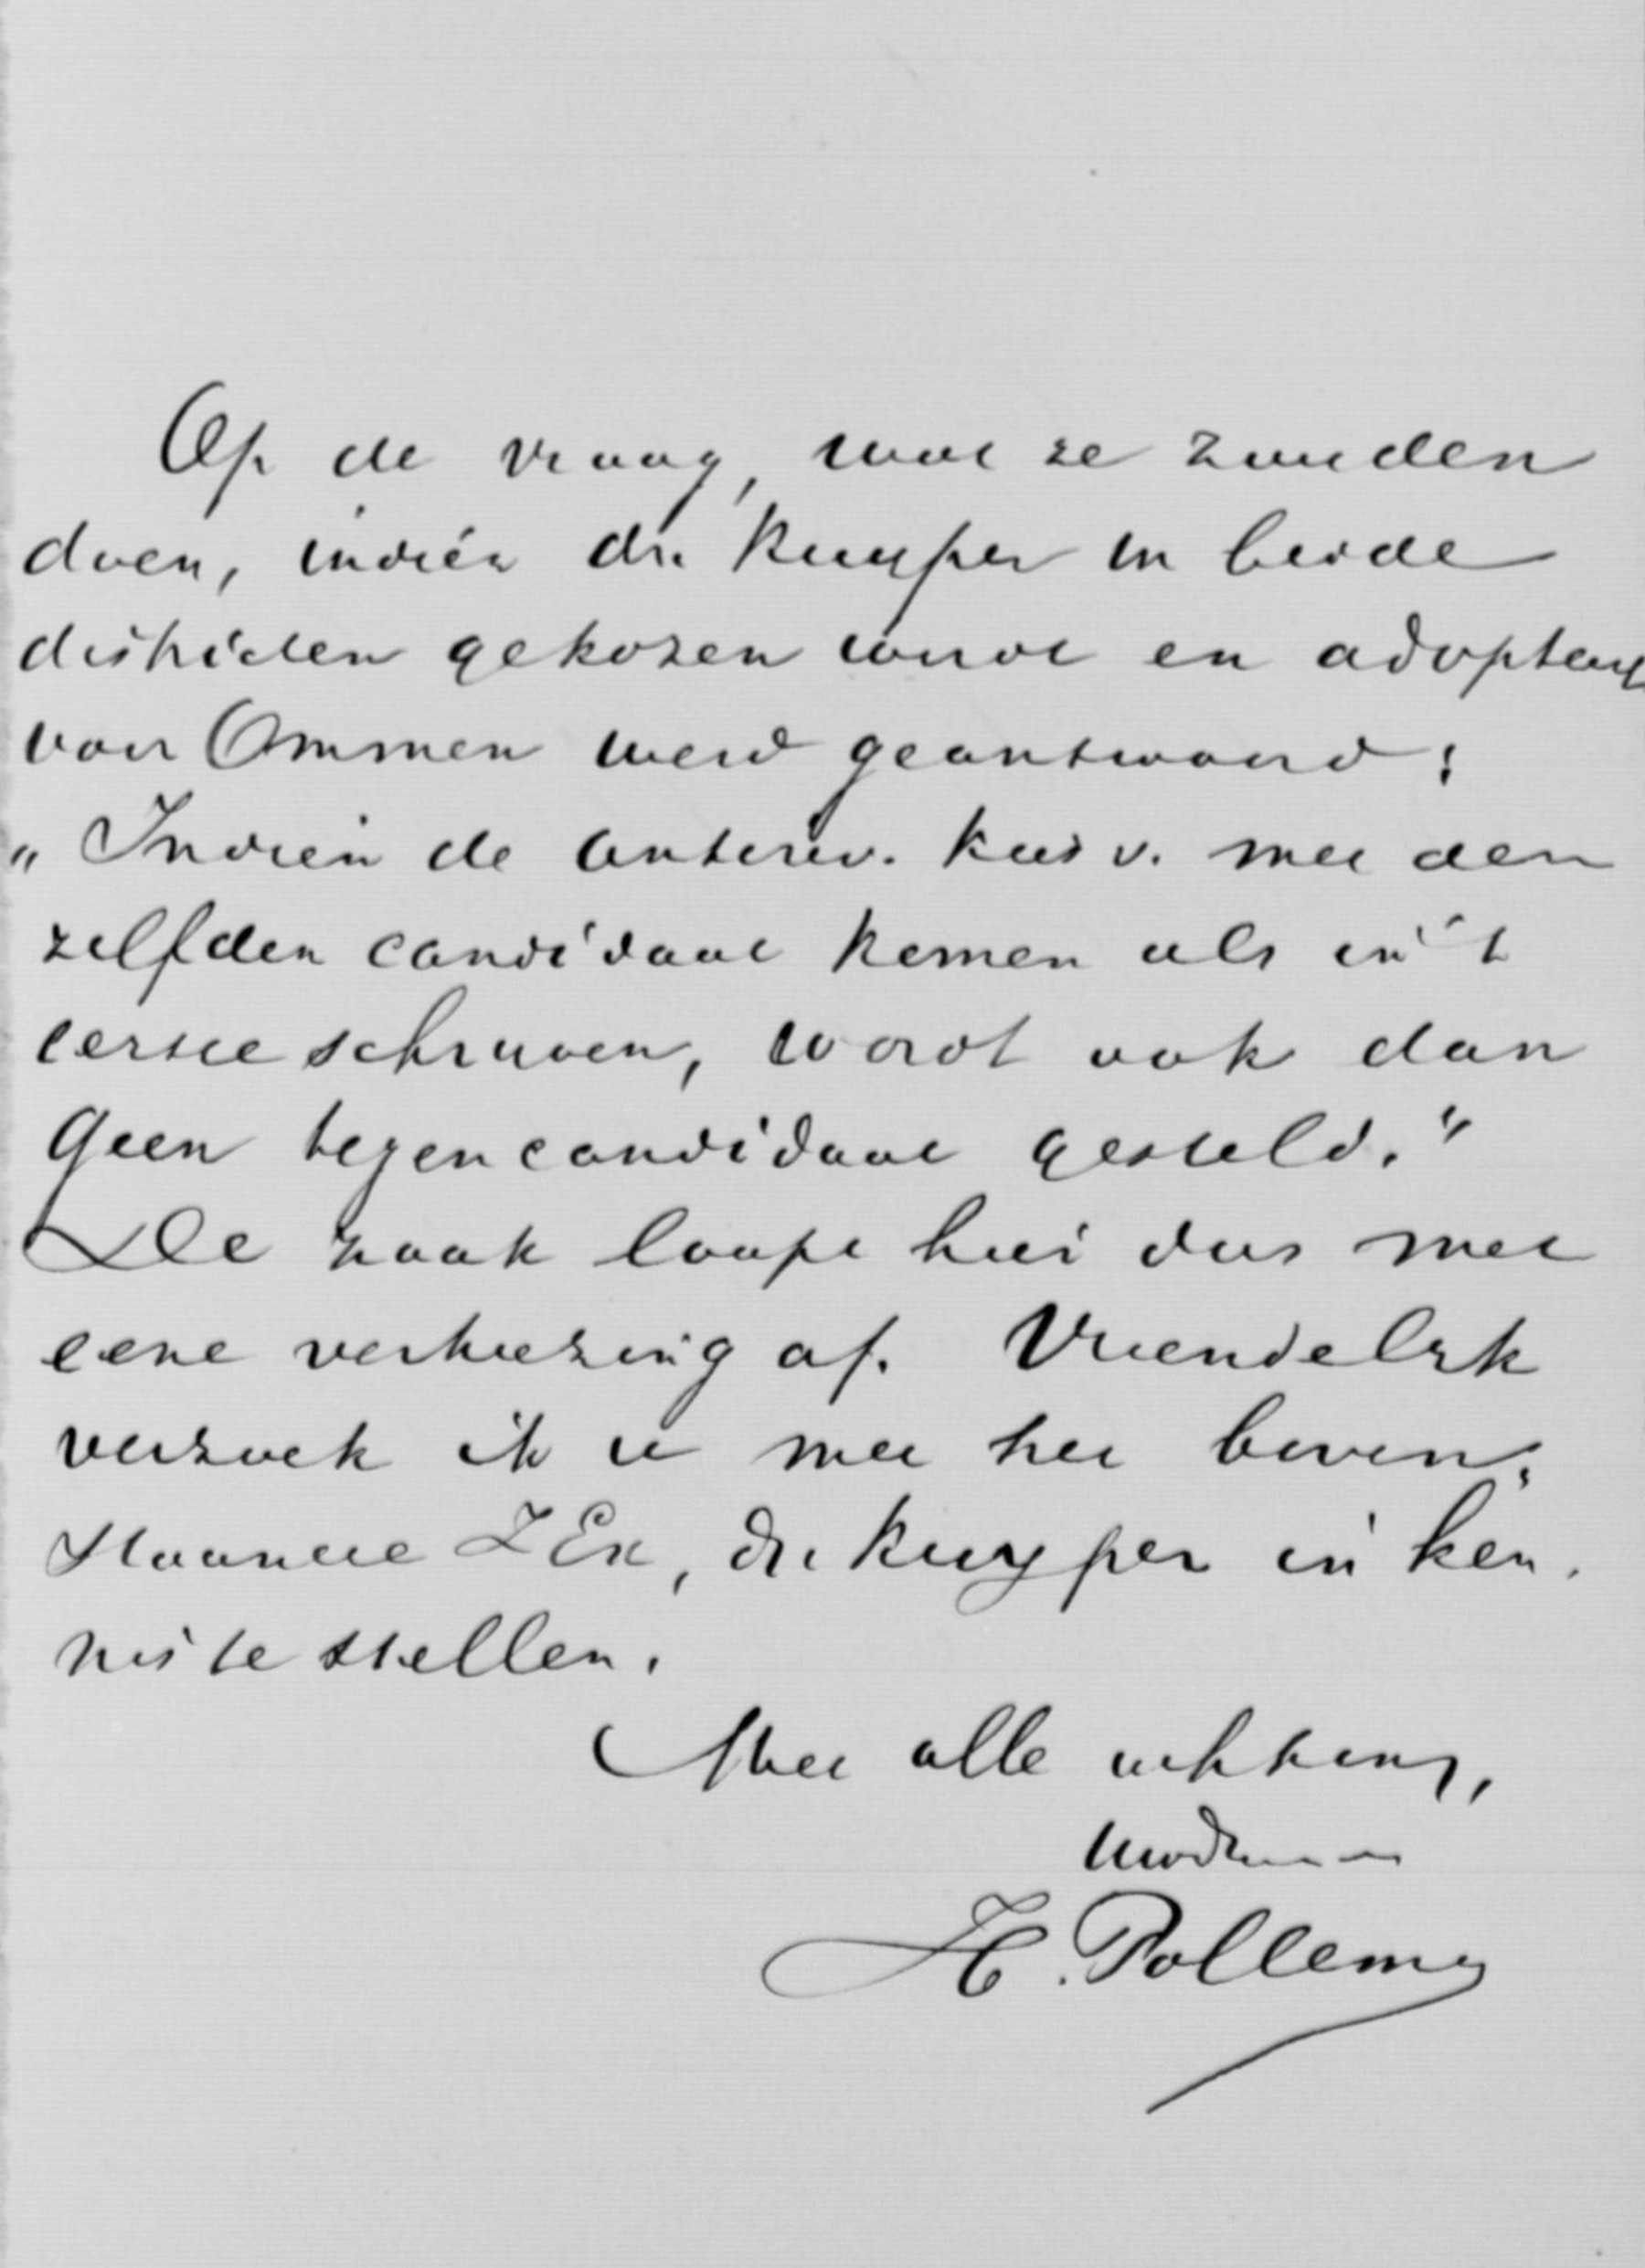 Op de vraag, wat ze zouden
doen, indien dr. Kuyper in beide
districten gekozen wordt en
voor Ommen werd geantwoord:
„Indien de antirev. kiesv. met den
zelfden candidaat komen als in 't
eerste schrijven, wordt ook dan
geen tegencandidaat gesteld."
De zaak loopt hier dus met
eene verkiezing af. Vriendelijk
verzoek ik u met het boven-
staande Z Ex, dr. Kuyper in ken-
nis te stellen.
Met alle achting,
H. Pollema